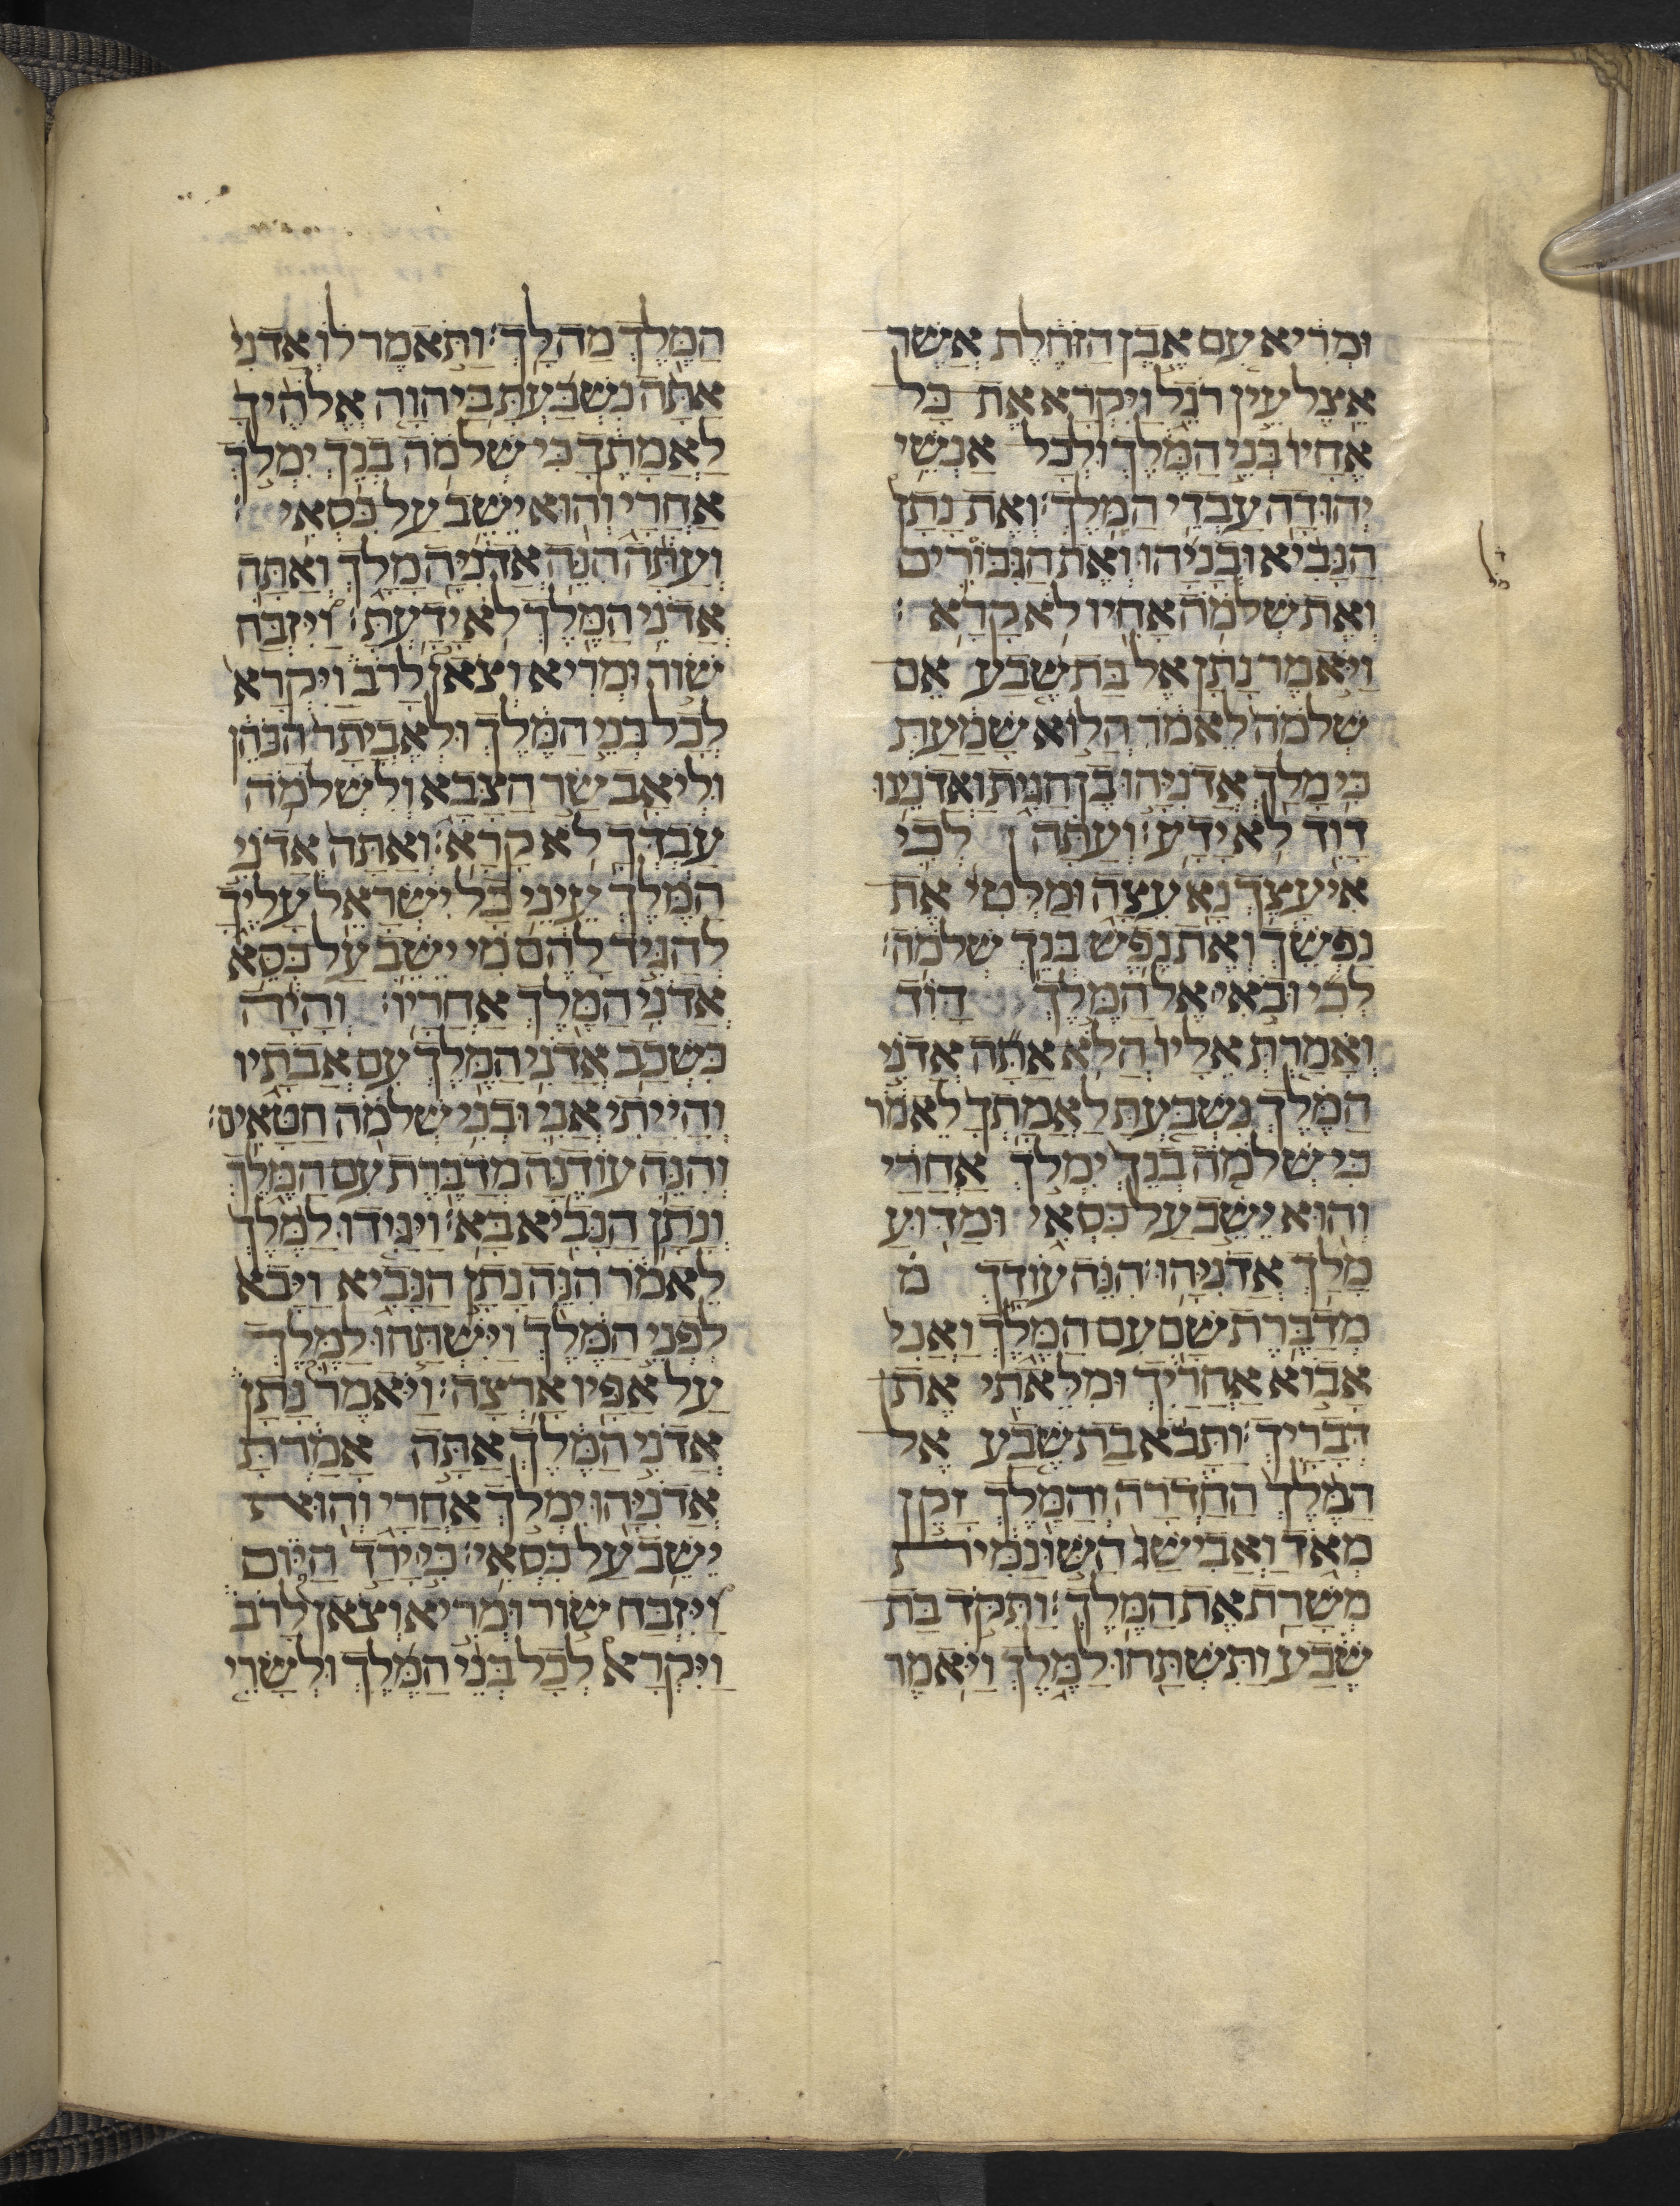 ומריא עם אבן הזחלת אשר
אצל עין רגל ויקרא את כל
אחיו בני המלך ולכל אנשי
יהודה עבדי המלך: ואת נתן
הנביא ובניהו ואת הגבורים
ואת שלמה אחיו לא קרא:
ויאמר נתן אל בת שבע אם
שלמה לאמר הלוא שמעת
כי מלך אדניהו בן חגית ואדנינו
דוד לא ידע: ועתה לכי
איעצך נא עצה ומלטי את
נפשך ואת נפש בנך שלמה:
לכי ובאי אל המלך דוד
ואמרת אליו הלא אתה אדני
המלך נשבעת לאמתך לאמר
כי שלמה בנך ימלך אחרי
והוא ישב על כסאי ומדוע
מלך אדניהו: הנה עודך מ
מדברת שם עם המלך ואני
אבוא אחריך ומלאתי את
דבריך: ותבא בת שבע אל
המלך החדרה והמלך זקן
מאד ואבישג השונמית
משרת את המלך: ותקד בת
שבע ותשתחו למלך ויאמר
המלך מה לך: ותאמר לו אדני
אתה נשבעת ביהוה אלהיך
לאמתך כי שלמה בנך ימלך
אחרי והוא ישב על כסאי:
ועתה הנה אדניה מלך ואתה
אדני המלך לא ידעת: ויזבח
שור ומריא וצאן לרב ויקרא
לכל בני המלך ולאביתר הכהן
וליאב שר הצבא ולשלמה
עבדך לא קרא: ואתה אדני
המלך עיני כל ישראל עליך
להגיד להם מי ישב על כסא
אדני המלך אחריו: והיה
כשכב אדני המלך עם אבתיו
והייתי אני ובני שלמה חטאים:
והנה עודנה מדברת עם המלך
ונתן הנביא בא: ויגידו למלך
לאמר הנה נתן הנביא ויבא
לפני המלך וישתחו למלך
על אפיו ארצה: ויאמר נתן
אדני המלך אתה אמרת
אדניהו ימלך אחרי והוא
ישב על כסאי: כי ירד היום
ויזבח שור ומריא וצאן לרב
ויקרא לכל בני המלך ולשרי